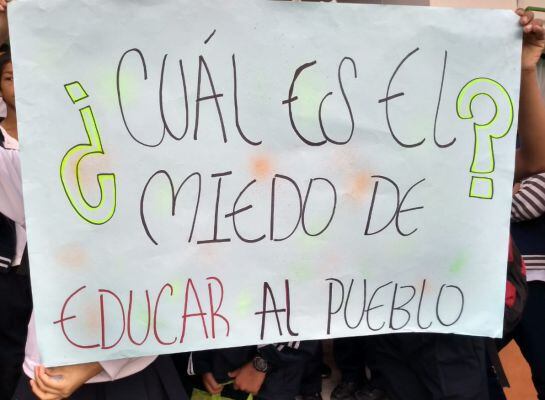 ¿CUÁL ES EL?
MIEDO DE
EDUCAR AL PUEBLO